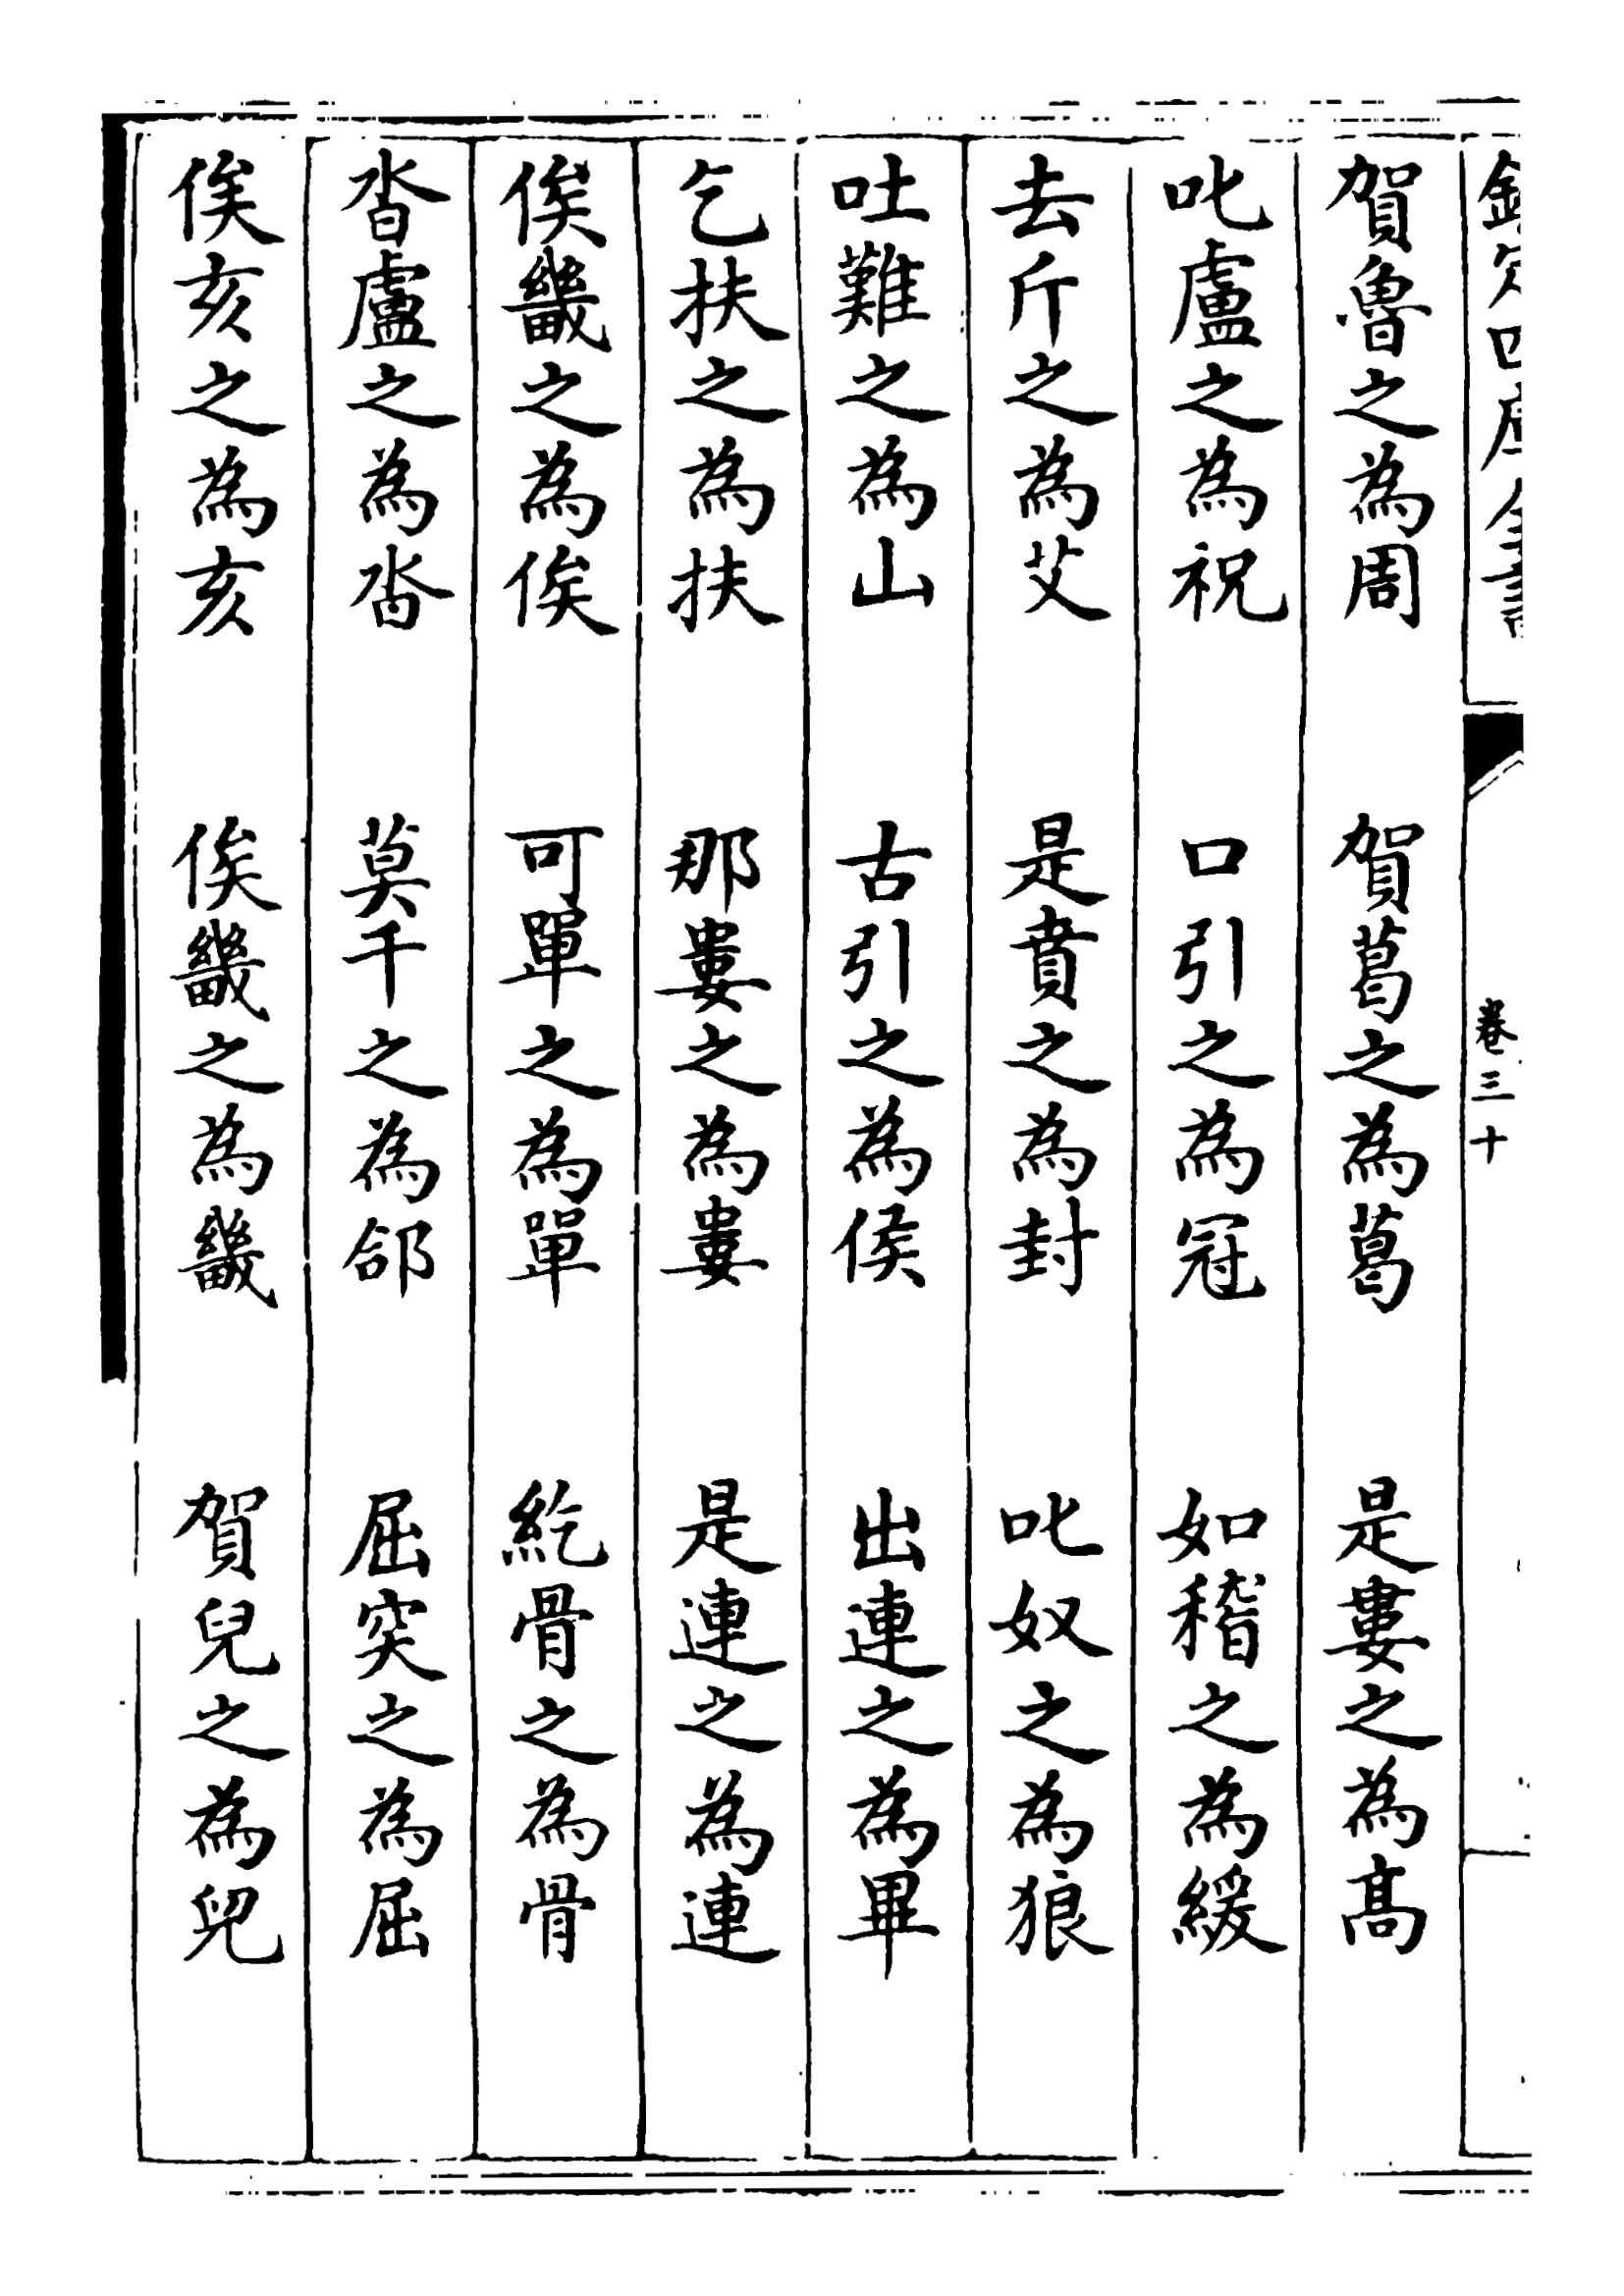 欽定四庫全書
卷三十
賀魯之為周 賀葛之為葛 是婁之為高
叱盧之為祝 口引之為冠 如稽之為緩
去斤之為艾 是賁之為封 叱奴之為狼
吐難之為山 古引之為侯 出連之為畢
乞扶之為扶 那婁之為婁 是連之為連
俟畿之為俟 可單之為單 紇骨之為骨
沓盧之為沓 莫千之為郃 屈突之為屈
俟亥之為亥 俟畿之為畿 賀兒之為兒